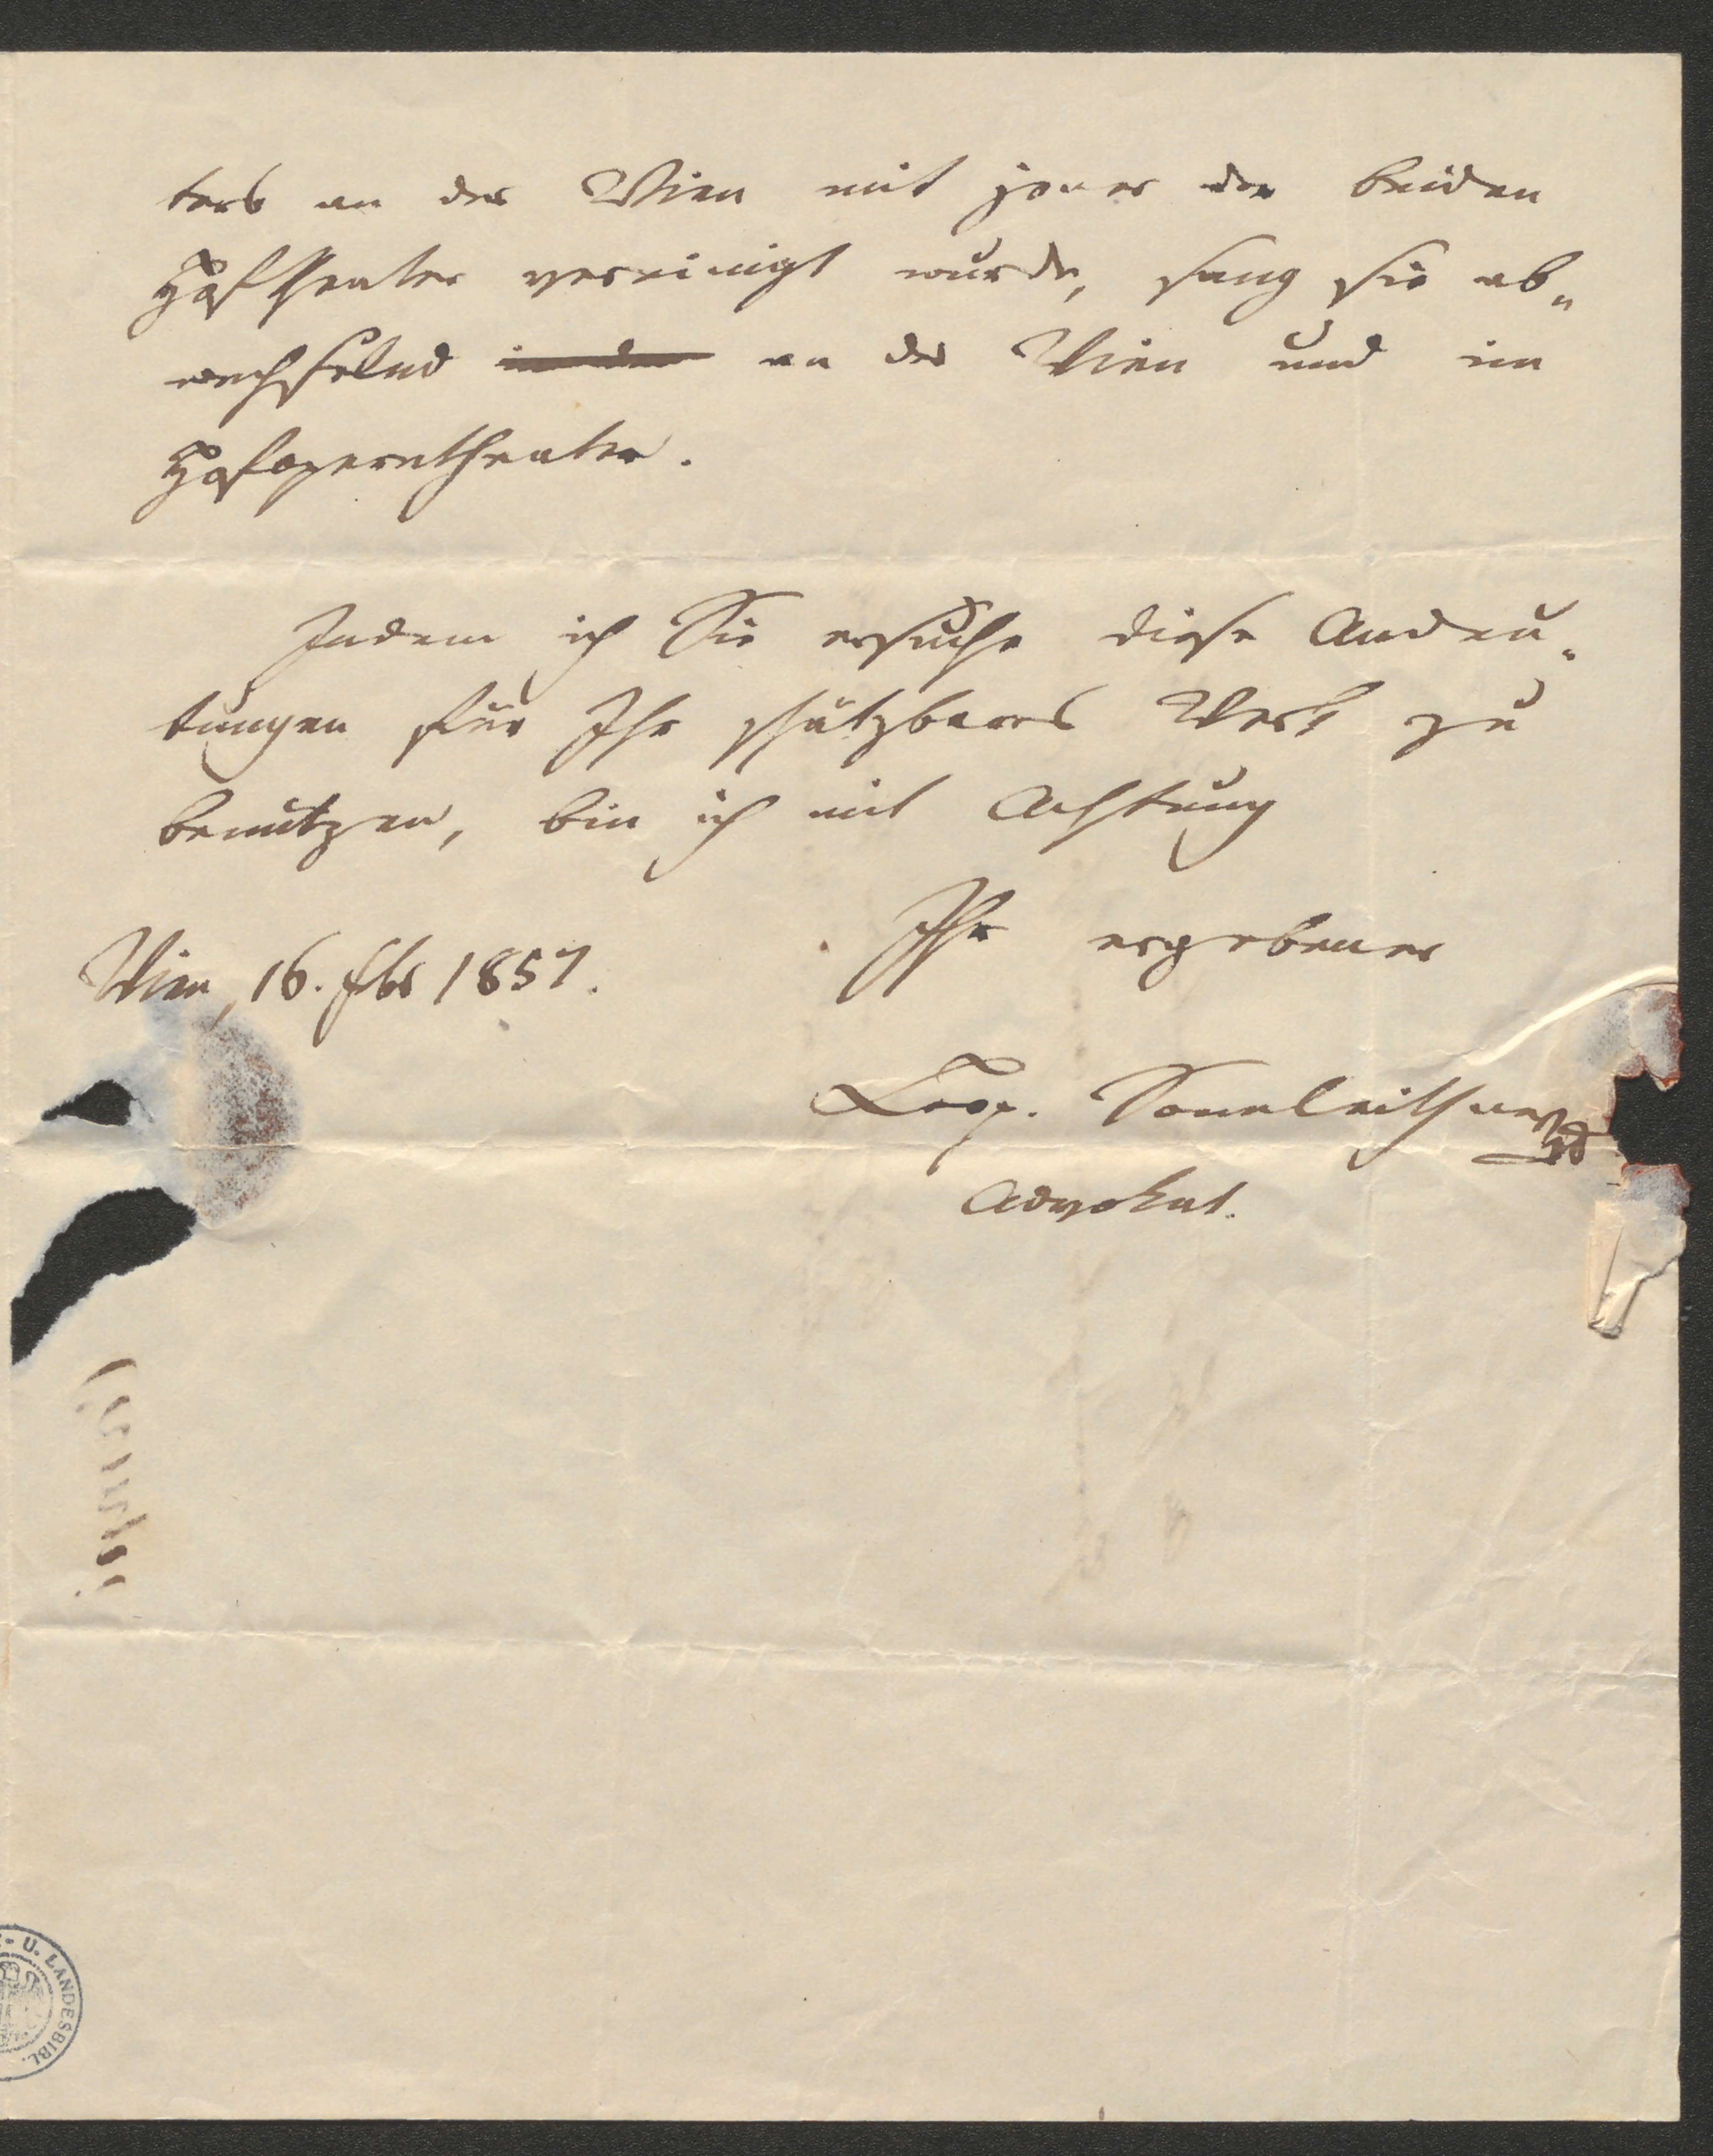 ters an der Wien mit jener der beiden
Hoftheater vereinigt wurde, sang sie ab„
wechselnd in dem an der Wien und im
Hofoperntheater.
Indem ich Sie ersuche diese Andeu„
tungen für Ihr schätzbares Werk zu
benützen, bin ich mit Achtung
Ihr ergebener
Wien, 16. Fbr 1857.
Leop. Sonnleithner
Advokat.
- U. LANDESBIBL.